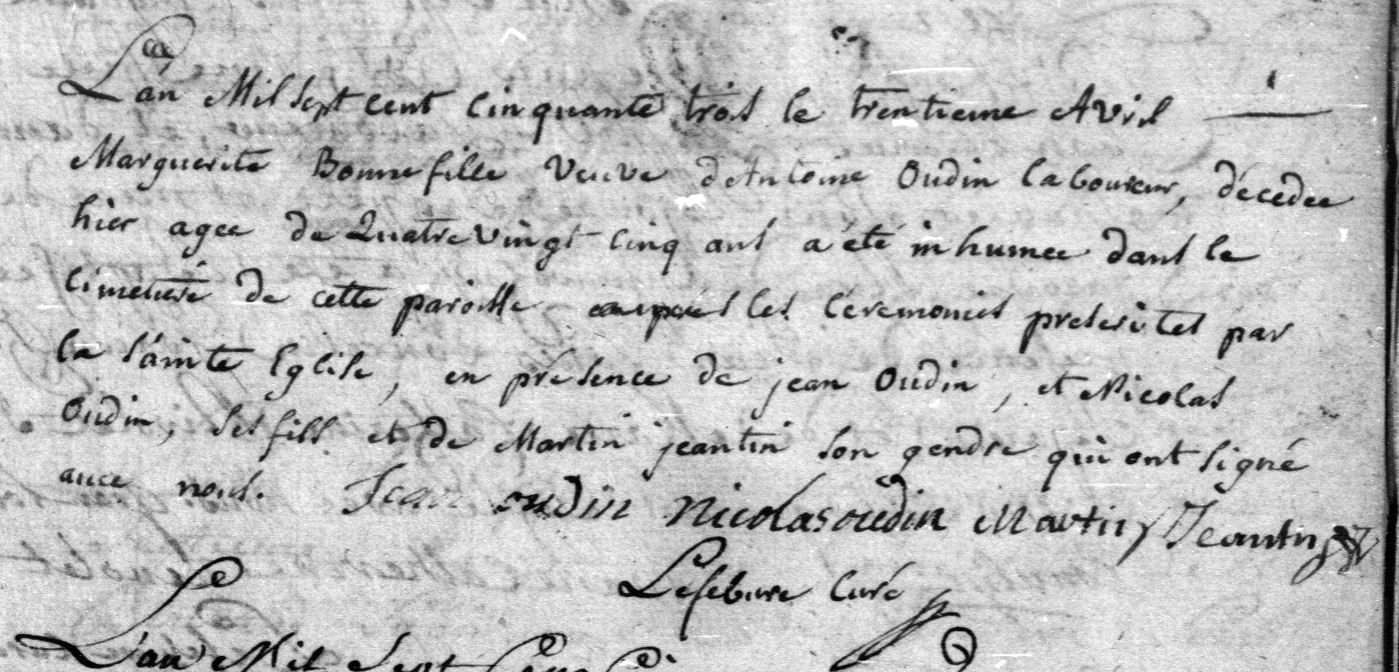 L'an Mil Sept cent cinquante trois le trentieme Avril
Marguerite Bonnefille veuve d'Antoine Oudin laboureur, décedée
hier agee de Quatre vingt cinq ans a été inhumee dans le
cimetiere de cette paroisse les ceremonies prescrites par
la sainte Eglise, en présence de jean Oudin, et Nicolas
Oudin, ses fils et de Martin jeantin son gendre qui ont signé
avec nous. Jean oudin nicolas oudin Martin Jeantin
Lefebure Curé
L'an Mil Sept Cent